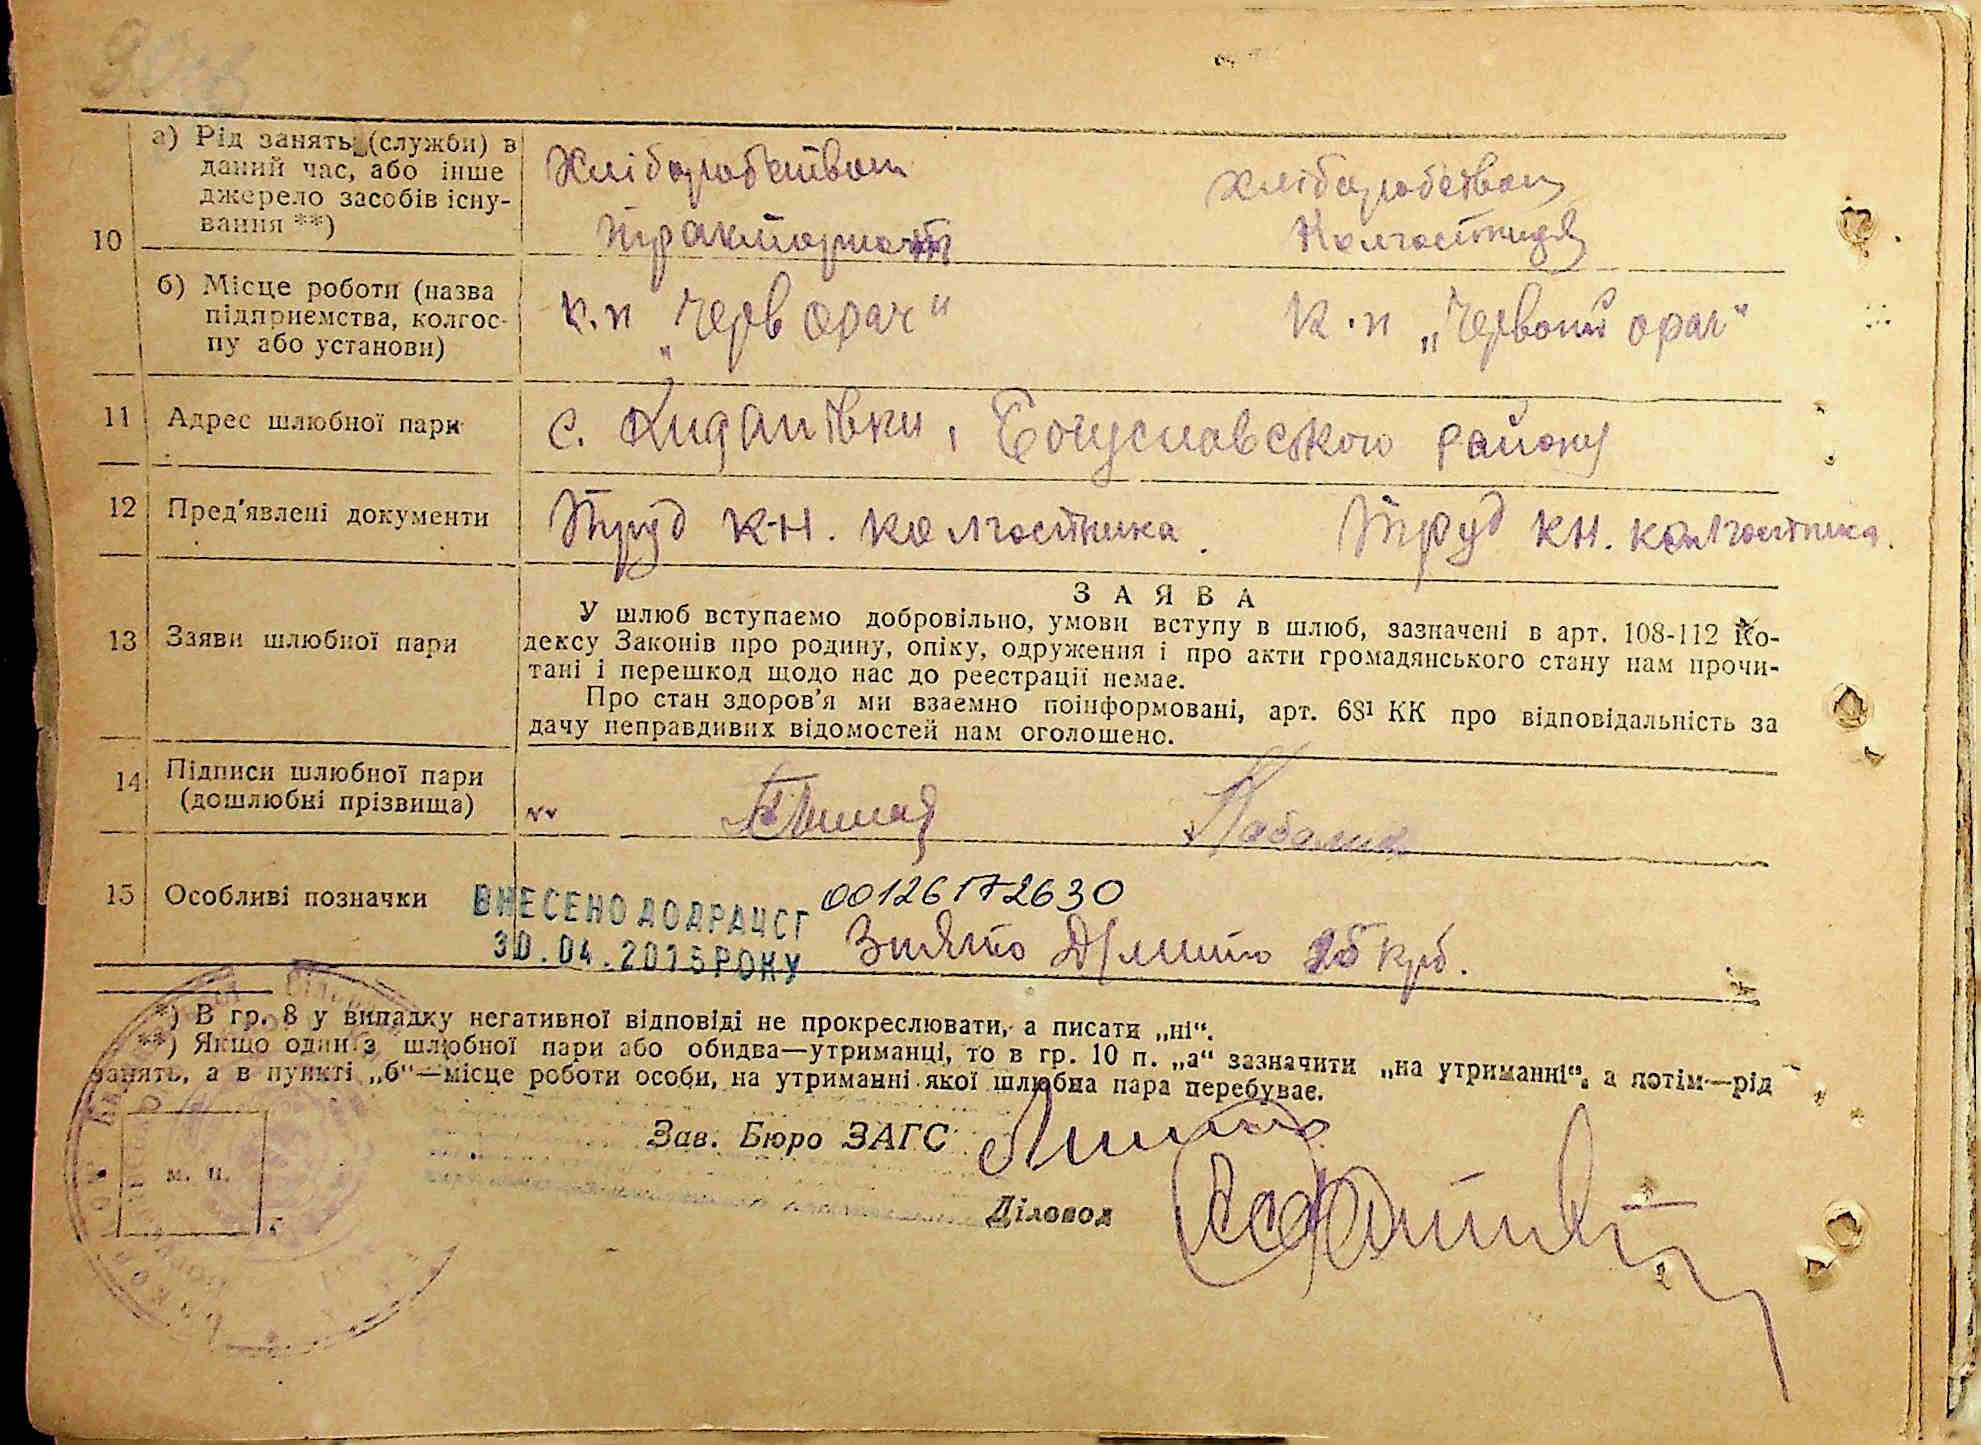 а) Рід занять (служби) в
даний час, або інше
джерело засобів існу-
вання **)
Хліборобством Хліборобством
10
тракторист Колгостниця
б) Місце роботи (назва
підприємства, колгос-
пу або установи)
к.п „Черв орач“ к.п „Червоний орач“
11 Адрес шлюбної пари с. Киданівки, Богуславського району
12 Пред'явлені документи Труд кн. колгостника. Труд кн. колгостника.
13 Заяви шлюбної пари
ЗАЯВА
У шлюб вступаємо добровільно, умови вступу в шлюб, зазначені в арт. 108-112 Ко-
дексу Законів про родину, опіку, одруження і про акти громадянського стану нам прочи-
тані і перешкод щодо нас до реєстрації немає.
Про стан здоров'я ми взаємно поінформовані, арт. 68¹ КК про відповідальність за
дачу неправдивих відомостей нам оголошено.
14 Підписи шлюбної пари
(дошлюбні прізвища)
15 Особливі позначки
ВНЕСЕНО ДО ДРАЦСГ 00126172630
30.04.2015 РОКУ Знято Д/мито 25 крб.
*) В гр. 8 у випадку негативної відповіді не прокреслювати, а писати „ні“.
**) Якщо один з шлюбної пари або обидва—утриманці, то в гр. 10 п. „а“ зазначити „на утриманні“, а потім—рід
занять, а в пункті „б“—місце роботи особи, на утриманні якої шлюбна пара перебуває.
Зав. Бюро ЗАГС
м. п.
Діловод